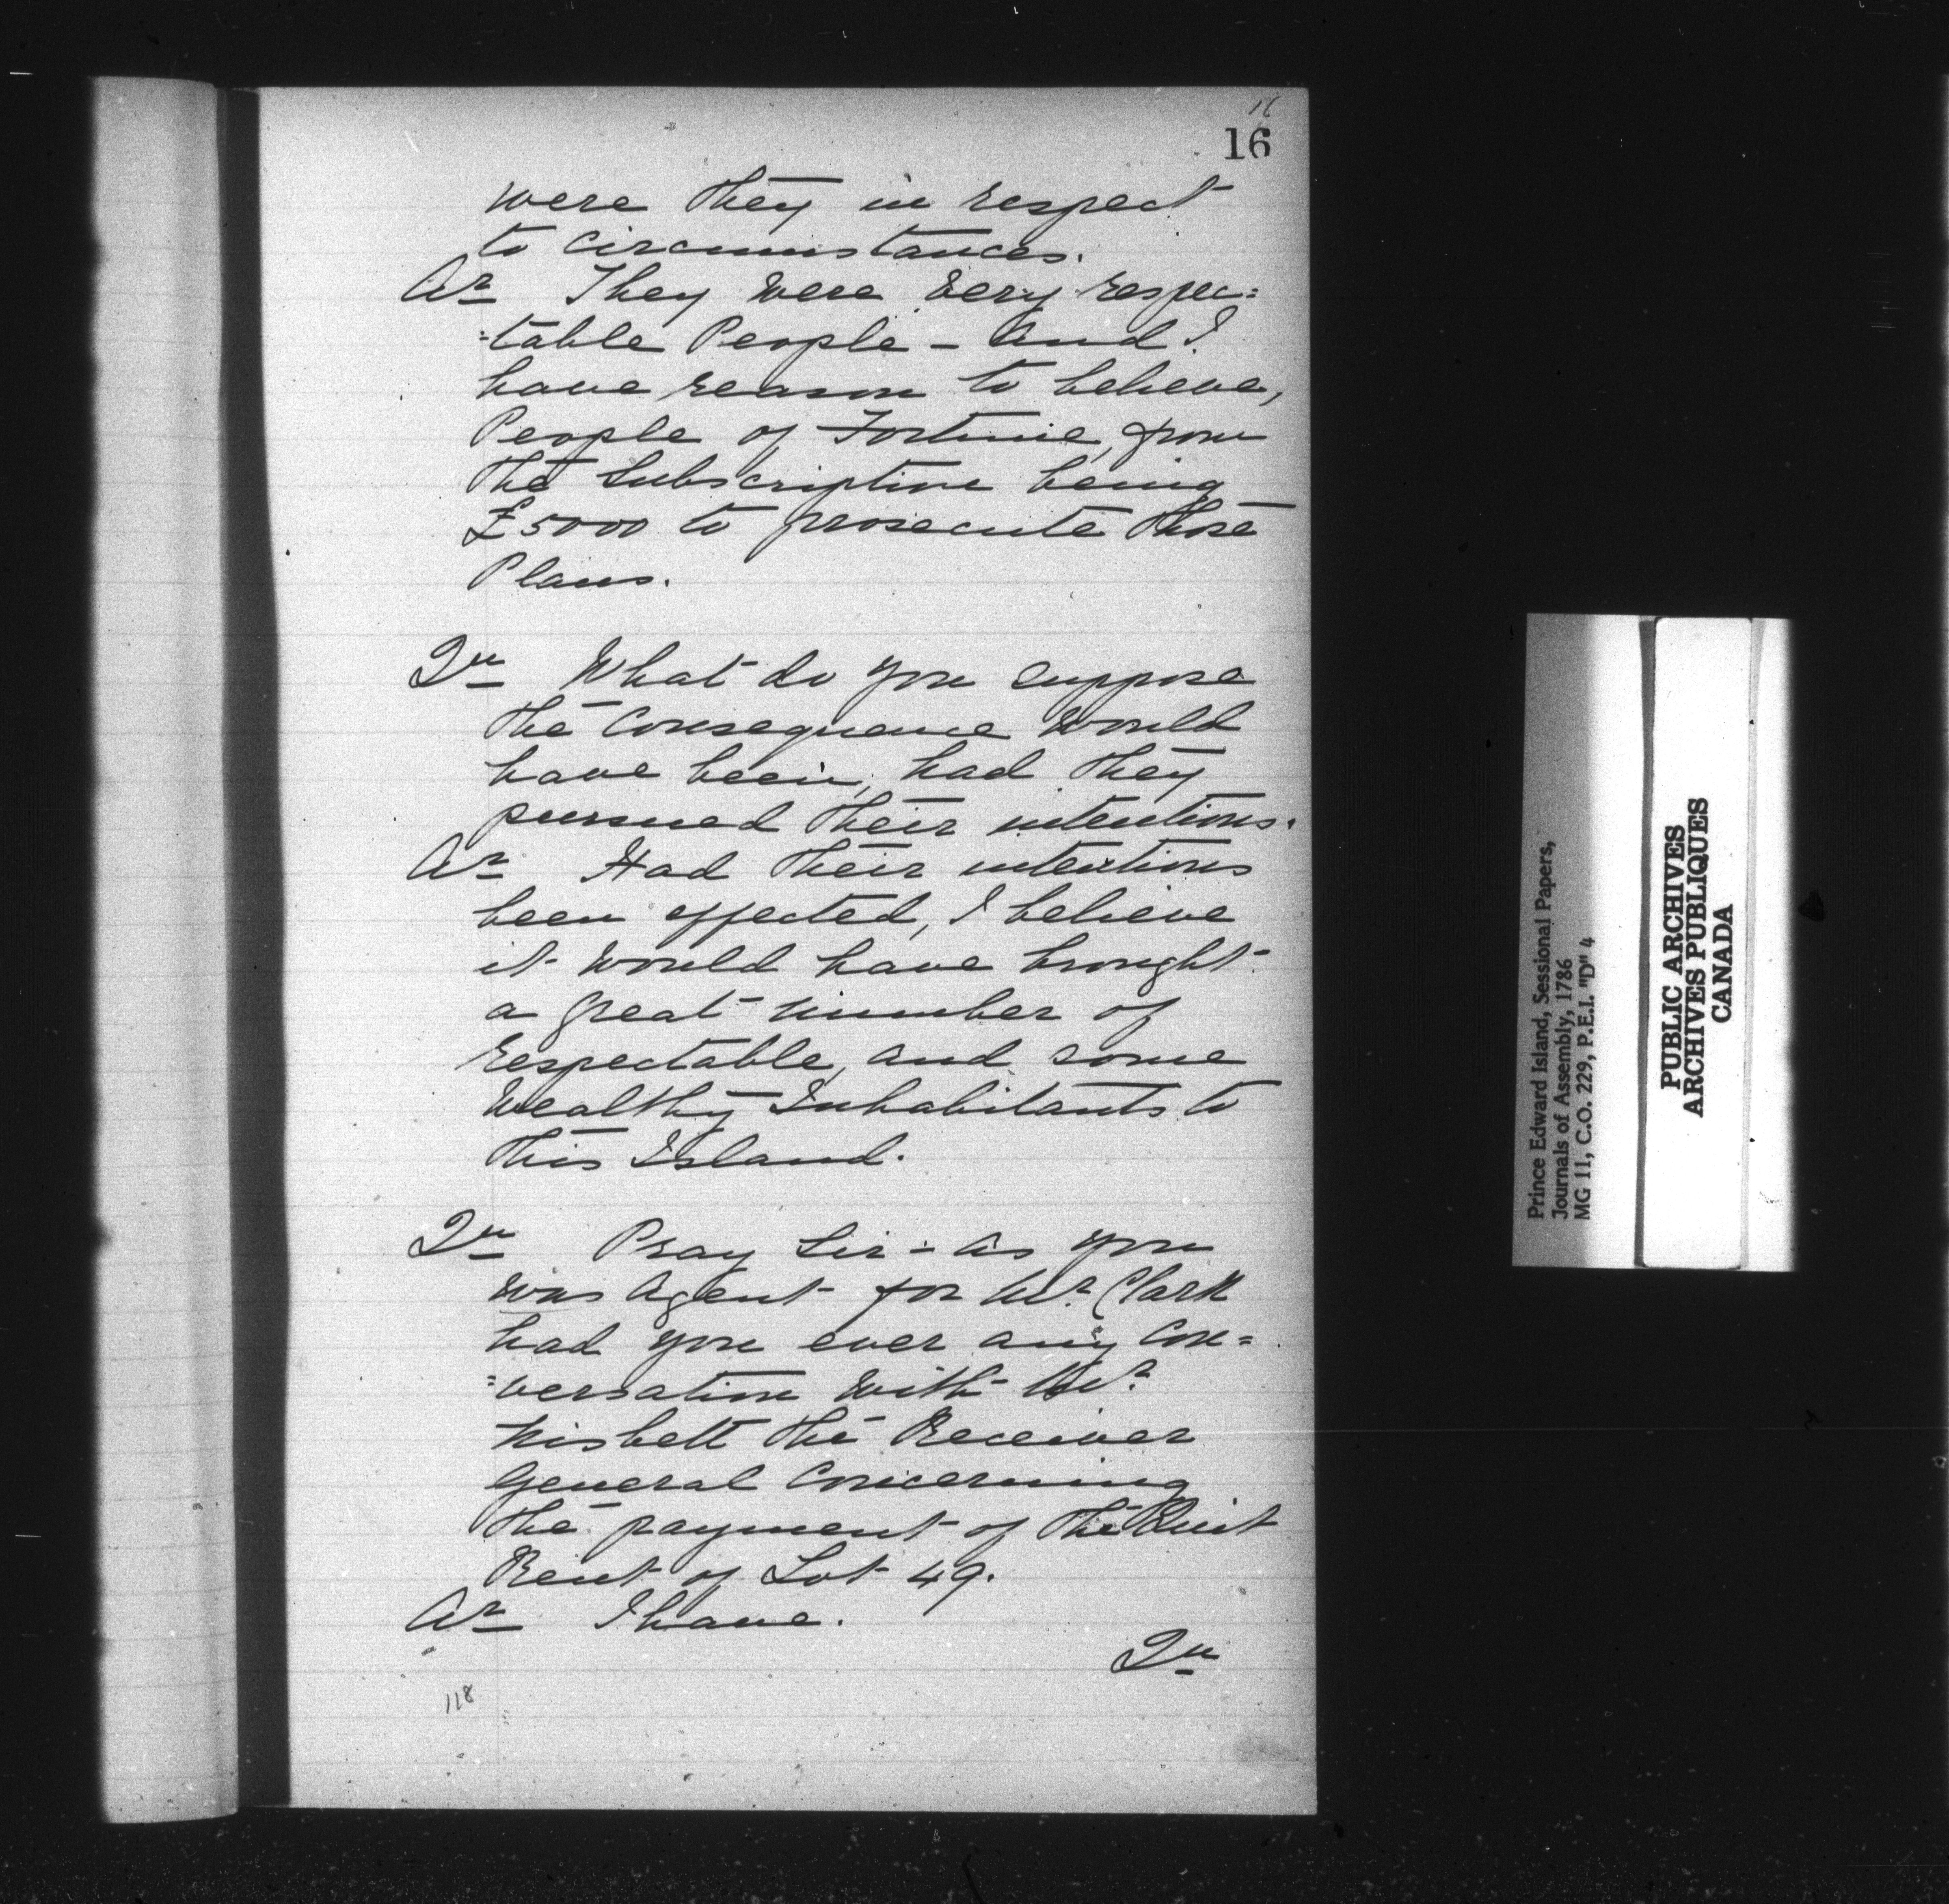 16
16
were they in respect
to Circumstances.
Ar They were very respec=
=table People - and I
have reason to believe,
People of Fortune, from
the Subscription being
£5000 to prosecute those
Plans.
Qu What do you suppose
the Consequence would
have been, had they
pursued their intentions.
Ar Had their intentions
been effected, I believe
it would have brought
a great number of
respectable, and some
Wealthy Inhabitants to
this Island.
Qu Pray Sir - as you
was Agent for Mr. Clark
had you ever any Con=
=versation with Mr.
Nisbett the Receiver
General Concerning
the payment of the Quit
Rent of Lot 49.
Ar I have.
Qu
118
Prince Edward Island, Sessional Papers,
Journals of Assembly, 1786
MG 11, C.O. 229, P.E.I. "D" 4
PUBLIC ARCHIVES
ARCHIVES PUBLIQUES
CANADA